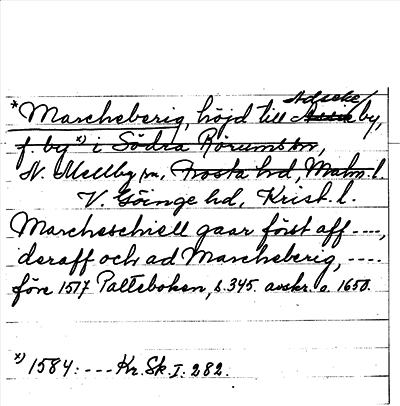 Adseke/
*Marcheberig, höjd till Assie by,
f. by x) i Södra Rörums sn,
N. Mellby sn, Frosta hd, Malm. l.
V. Göinge hd, Krist. l.
Marcheschiell gaar först aff ----,
deraff och ad Marcheberig, ----
före 1517 Palteboken, s. 345. avskr. o. 1650.
x) 1584: --- Kr. Sk. I. 282.